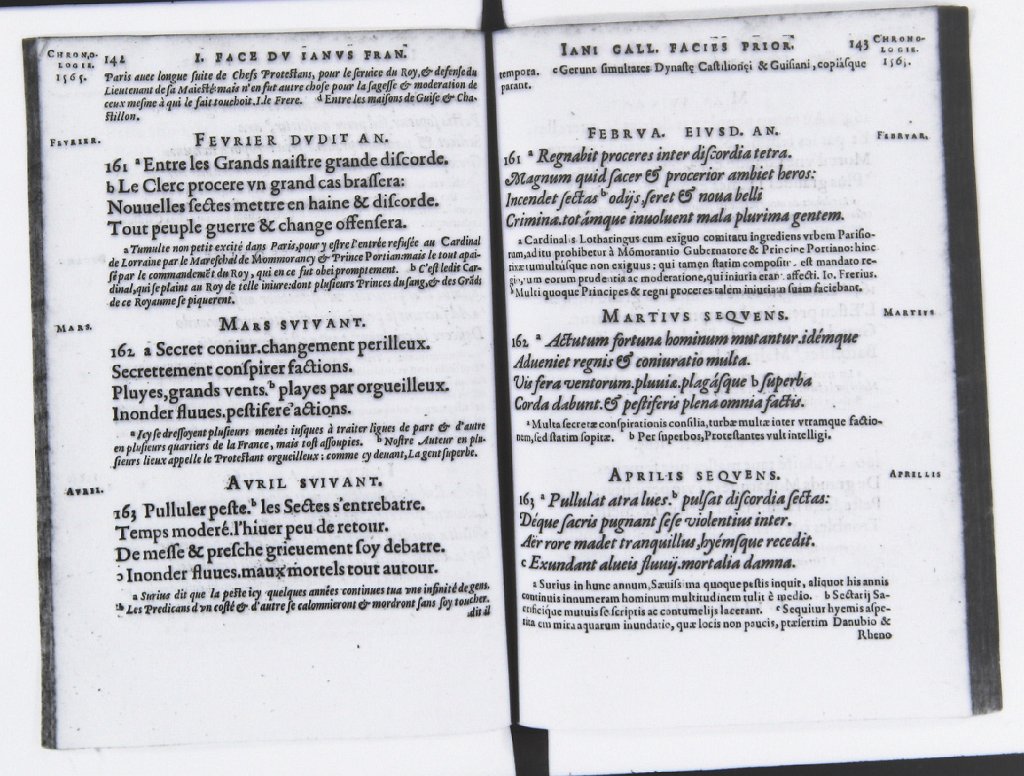 CHRONO-
LOGIE.
1565.
142 I. FACE DV IANVS FRAN.
Paris auec longue suite de Chefs Protestans, pour le seruice du Roy, & defense du
Lieutenant de sa Maiesté mais n'en fut autre chose pour la sagesse & moderation de
ceux mesme à qui le fait touchoit. I. le Frere. d Entre les maisons de Guise & Cha-
stillon.
FEVRIER.
FEVRIER DVDIT AN.
161 a Entre les Grands naistre grande discorde.
b Le Clerc procere vn grand cas brassera:
Nouuelles sectes mettre en haine & discorde.
Tout peuple guerre & change offensera.
a Tumulte non petit excité dans Paris, pour y estre l'entrée refusée au Cardinal
de Lorraine par le Mareschal de Mommorancy & Prince Portian: mais le tout apai-
sé par le commandemēt du Roy, qui en ce fut obei promptement. b C'est ledit Car-
dinal, qui se plaint au Roy de telle iniure: dont plusieurs Princes du sang, & des Grāds
de ce Royaume se piquerent.
MARS.
MARS SVIVANT.
162 a Secret coniur. changement perilleux.
Secrettement conspirer factions.
Pluyes, grands vents. b playes par orgueilleux.
Inonder fluues. pestifere actions.
a Icy se dressoyent plusieurs menées iusques à traiter ligues de part & d'autre
en plusieurs quartiers de la France, mais tost assoupies. b Nostre Auteur en plu-
sieurs lieux appelle le Protestant orgueilleux: comme cy deuant, La gent superbe.
AVRIL.
AVRIL SVIVANT.
163 Pulluler peste. b les Sectes s'entrebatre.
Temps moderé. l'hiuer peu de retour.
De messe & presche grieuement soy debatre.
c Inonder fluues. maux mortels tout autour.
a Surius dit que la peste icy quelques années continues tua vne infinité de gens.
b Les Predicans d'vn costé & d'autre se calomnierent & mordront sans soy toucher.
dit il
IANI GALL. FACIES PRIOR. 143
CHRONO-
LOGIE.
1565.
tempora. c Gerunt simultates Dynastę Castilionęi & Guisiani, copiásque
parant.
FEBRVAR.
FEBRVA. EIVSD. AN.
161 a Regnabit proceres inter discordia tetra.
Magnum quid sacer & procerior ambiet heros:
Incendet sectas b odijs, seret & noua belli
Crimina. totámque inuoluent mala plurima gentem.
a Cardinalis Lotharingus cum exiguo comitatu ingrediens vrbem Parisio-
rum, aditu prohibetur à Mōmorantio Gubernatore & Principe Portiano: hinc
tumultúsque non exiguus: qui tamen statim est mandato re-
eorum prudentia ac moderatione, qui iniuria affecti. Io. Frerius.
b Multi quoque Principes & regni proceres talem iniuriam suam faciebant.
MARTIVS
MARTIVS SEQVENS.
162 a Actutum fortunæ hominum mutantur. idémque
Adueniet regnis & coniuratio multa.
Vis fera ventorum. pluuia. plagásque b superba
Corda dabunt. & pestiferis plena omnia factis.
a Multa secretæ conspirationis consilia, turbæ multæ inter vtramque factio-
nem, sed statim sopitæ. b Per superbos, Protestantes vult intelligi.
APRILLIS
APRILIS SEQVENS.
163 a Pullulat atra lues. b pulsat discordia sectas:
Déque sacris pugnant sese violentius inter.
Aër rore madet tranquillus, hyémsque recedit.
c Exundant alueis fluuij. mortalia damna.
a Surius in hunc annum, Sæuissima quoque pestis inquit, aliquot his annis
continuis innumeram hominum multitudinem tulit è medio. b Sectarij Sa-
crificique mutuis se scriptis ac contumelijs lacerant. c Sequitur hyemis aspe-
ritatem mira aquarum inundatio, quæ locis non paucis, præsertim Danubio &
Rheno